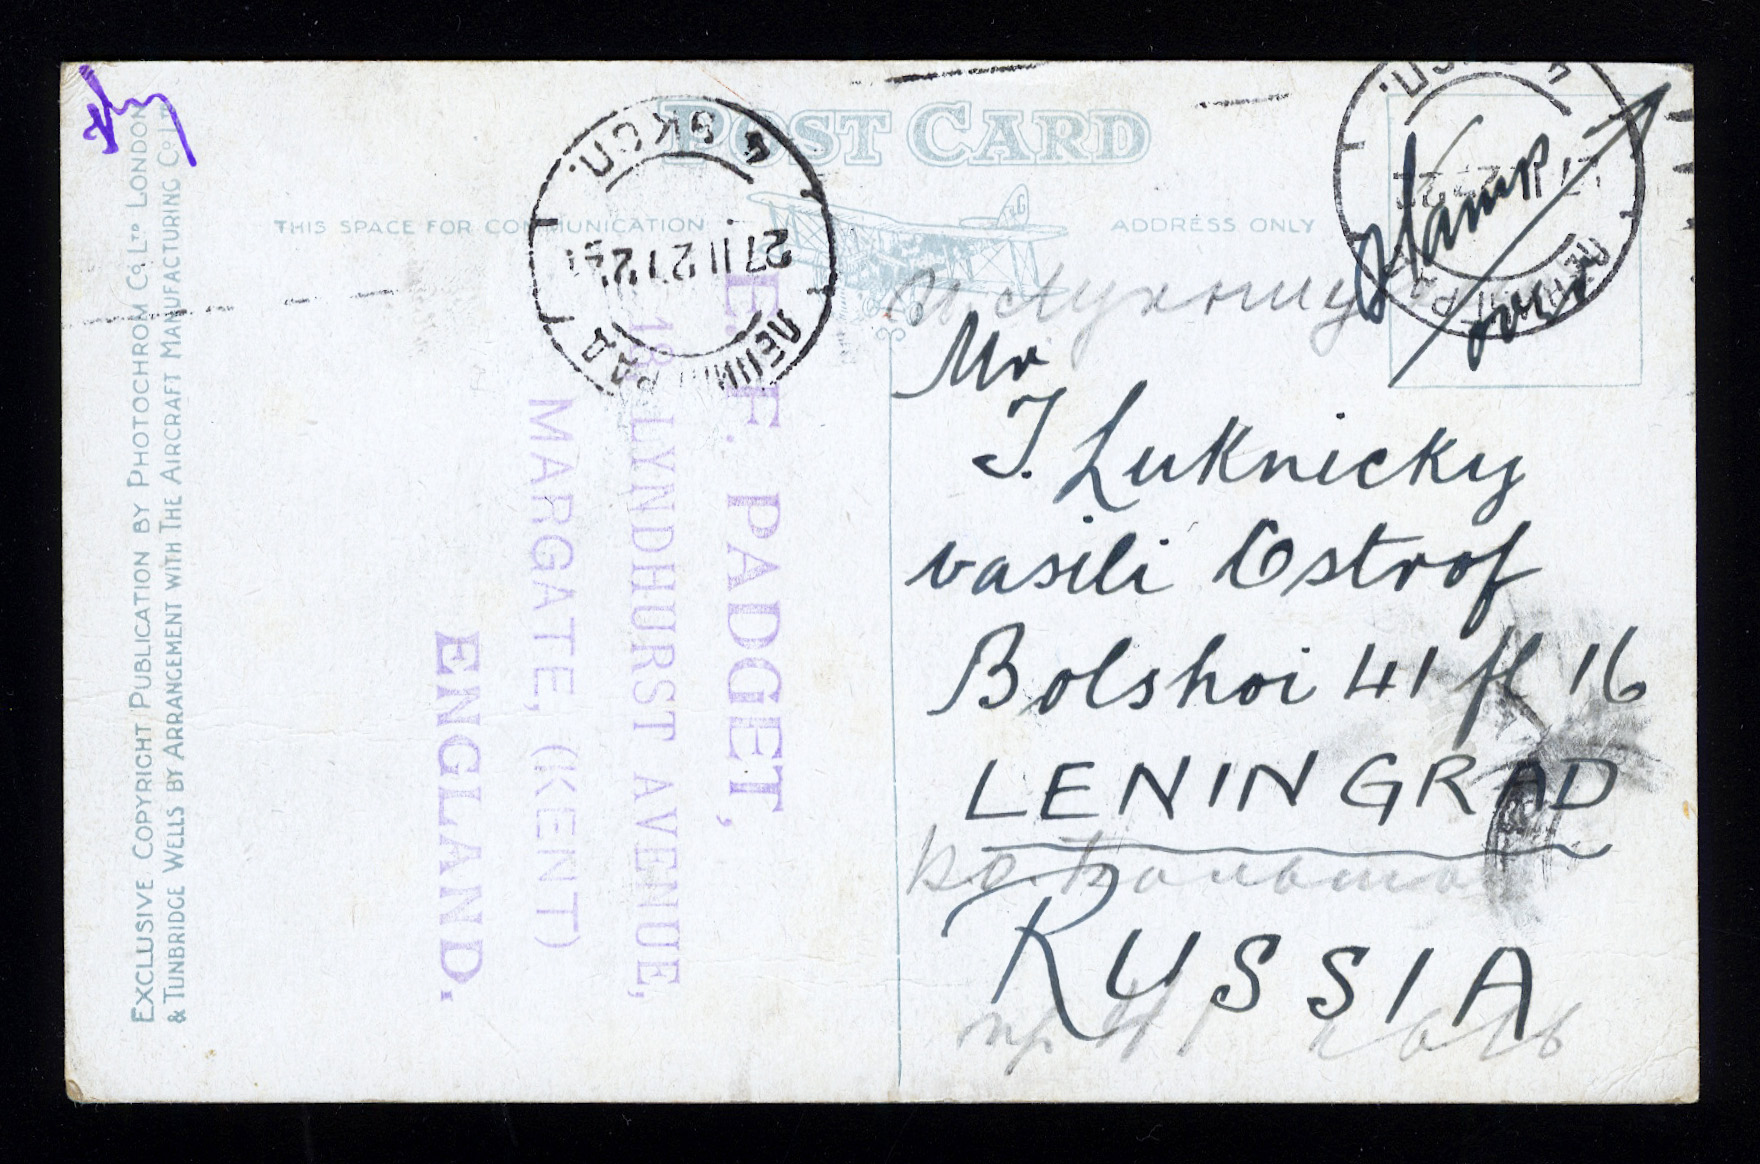 POST CARD
THIS SPACE FOR COMMUNICATION
ADDRESS ONLY
T&G
EXCLUSIVE COPYRIGHT PUBLICATION BY PHOTOCHROM CO. LTD LONDON
& TUNBRIDGE WELLS BY ARRANGEMENT WITH THE AIRCRAFT MANUFACTURING CO. LTD
E. F. PADGET,
18 LYNDHURST AVENUE,
MARGATE, (KENT)
ENGLAND.
ЛЕНИНГРАД
27 11 27
ЭКСП.
Stamp
over
Mr
J. Luknicky
vasili Ostrof
Bolshoi 41 fl 16
LENINGRAD
RUSSIA